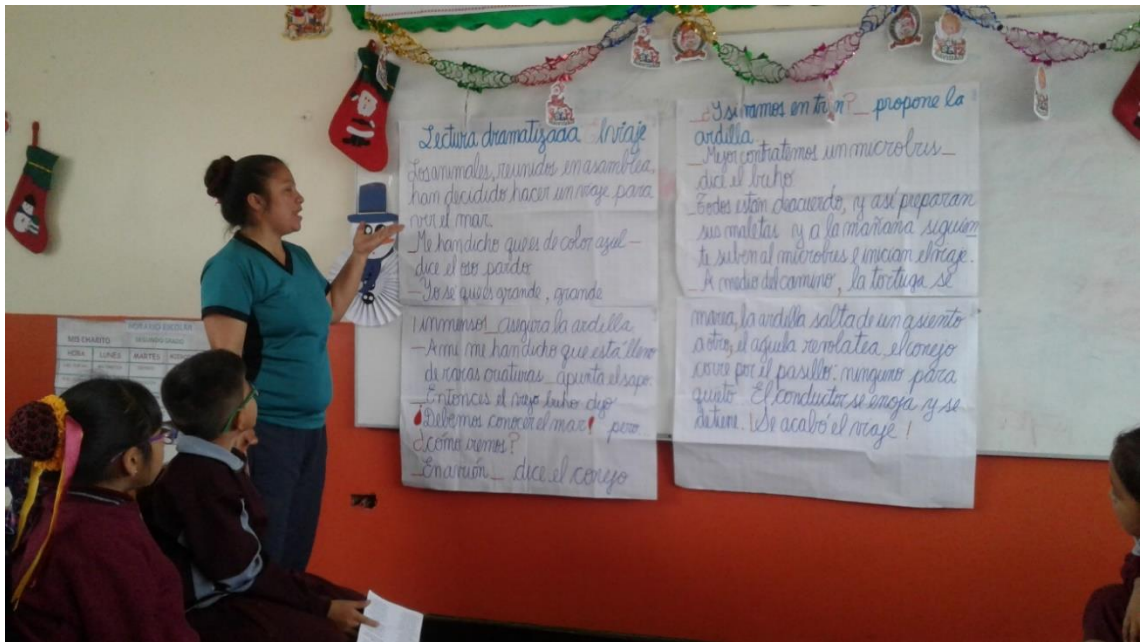 Lectura dramatizada Un viaje
Los animales, reunidos en asamblea,
han decidido hacer un viaje para
ver el mar.
_Me han dicho que es de color azul_
dice el oso pardo
_Yo se que es grande, grande
inmenso! _ asegura la ardilla.
_A mi me han dicho que está lleno
de raras criaturas _ apunta el sapo.
_Entonces el viejo buho dijo
¡Debemos conocer el mar! pero...
¿cómo iremos?
_En avión _ dice el conejo
¿Y si vamos en tren? _ propone la
ardilla
_Mejor contratemos un microbus_
dice el buho.
_Todos están deacuerdo, y así preparan
sus maletas y a la mañana siguien
te suben al microbus e inician el viaje.
_A medio del camino, la tortuga se
marea, la ardilla salta de un asiento
a otro, el aguila revolatea, el conejo
corre por el pasillo. ninguno para
quieto. El conductor se enoja y se
detiene. ¡Se acabó el viaje!
HORARIO ESCOLAR
MIS CHARITO SEGUNDO GRADO
HORA LUNES MARTES